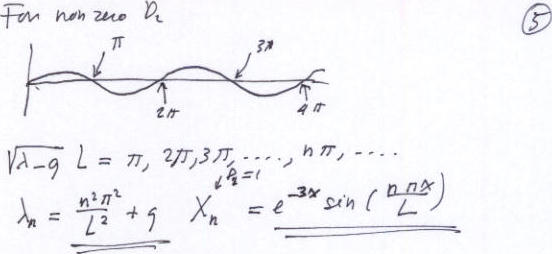 For non zero D₂
⑤
π
3π
2π
4π
√(λ-9) L = π, 2π, 3π, ...., nπ, ....
D₂=1
λₙ = n²π²/L² + 9 Xₙ = e^(-3x) sin (nπx/L)